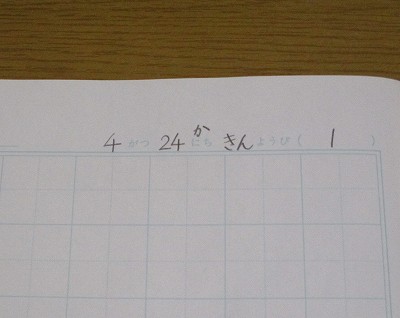 4がつ24かにちきんようび(1)